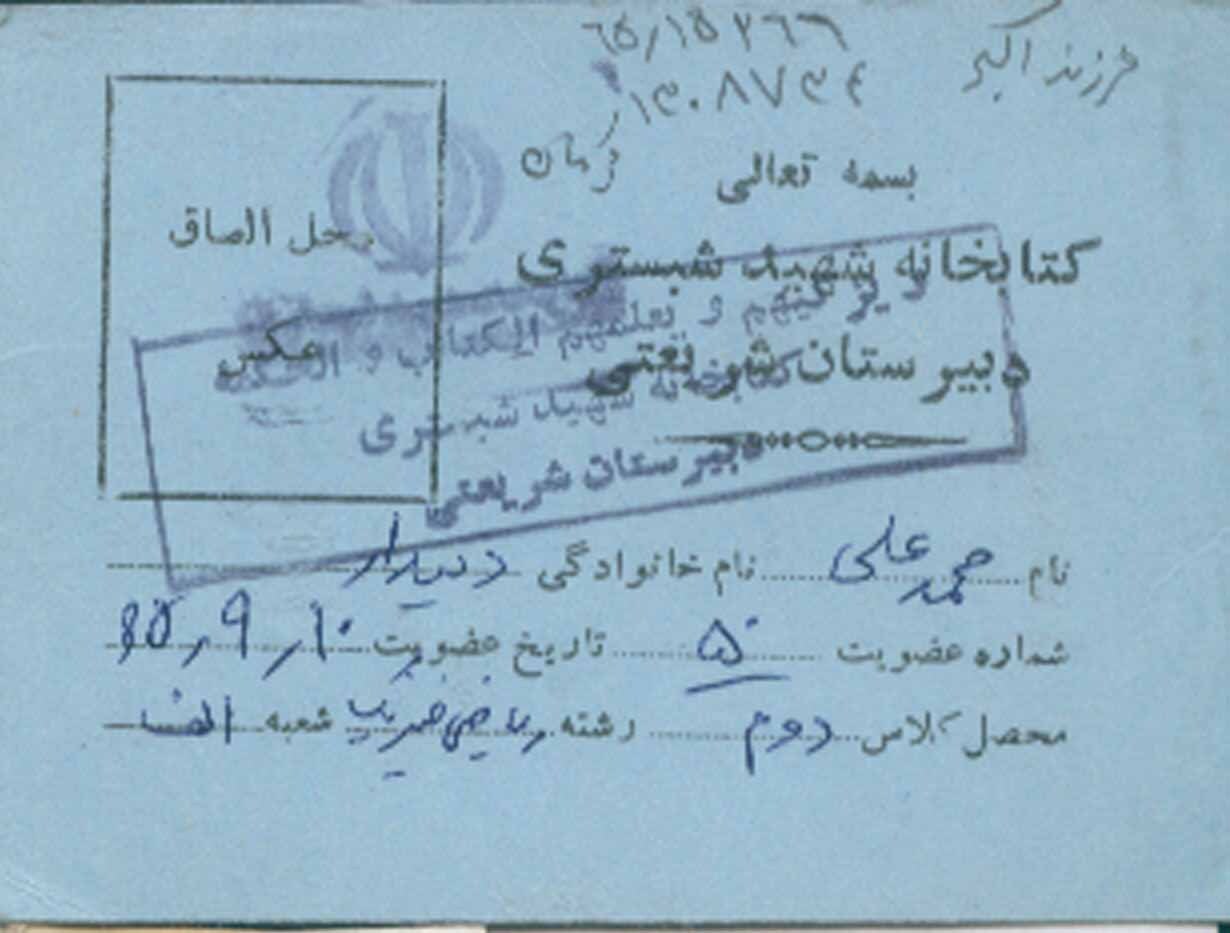 فرزند اکبر
۶۵/۱۵۲۶۶
۱۳۰۸۷۳۴
کرمان
بسمه تعالی
کتابخانه شهید شبستری
دبیرستان شریعتی
محل الصاق
عکس
و یزکیهم و یعلمهم الکتاب و الحکمة
کتابخانه شهید شبستری
دبیرستان شریعتی
نام محمد علی نام خانوادگی دیدار
شماره عضویت ۵۰ تاریخ عضویت ۱۰/۹/۶۵
محصل کلاس دوم رشته ریاضی فیزیک شعبه الف